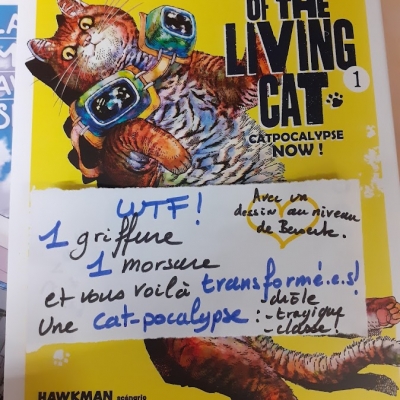 OF THE
LIVING
CAT
1
CATPOCALYPSE
NOW !
WTF !
Avec un
dessin au niveau
de Berserk.
1 griffure
1 morsure
et vous voilà transformé.e.s !
Une cat-pocalypse : - drôle
- tragique
- classe !
HAWKMAN scénario